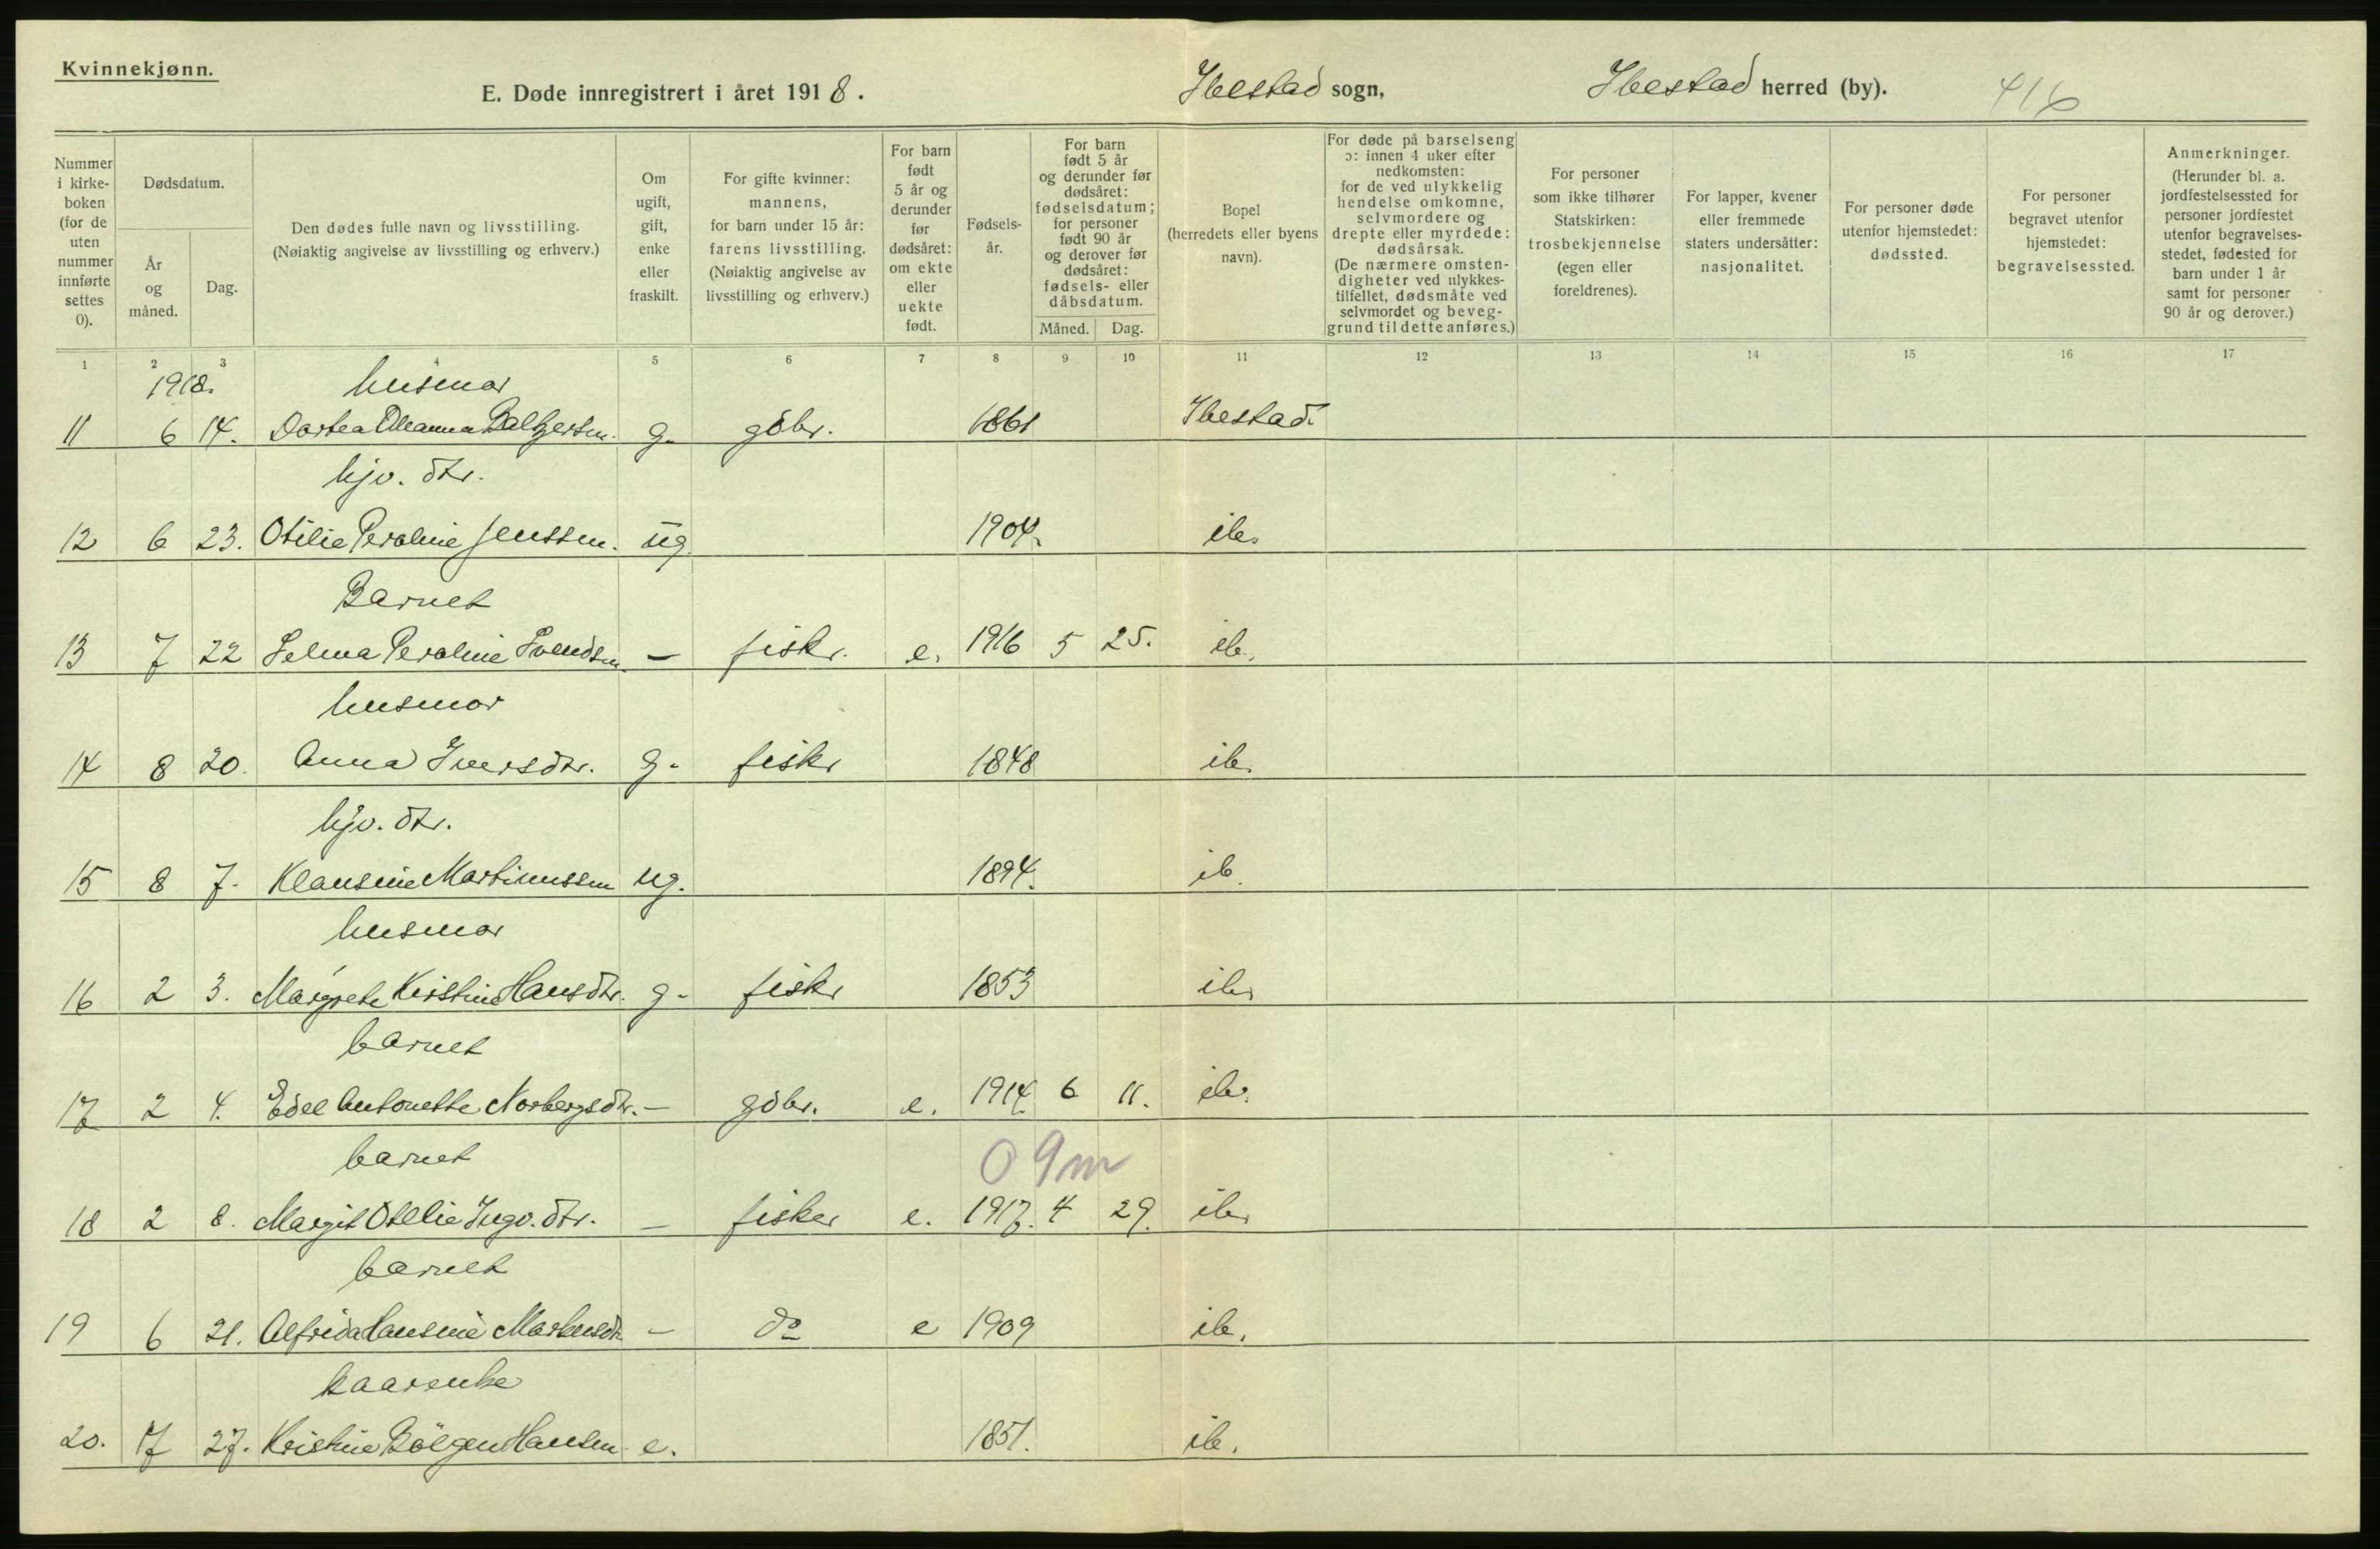 Kvinnekjønn.
E. Døde innregistrert i året 1918. Ibestad sogn, Ibestad herred (by). 416
Nummer i kirkeboken (for de uten nummer innførte settes 0).
Dødsdatum.
År og måned.
Dag.
Den dødes fulle navn og livsstilling.
(Nøiaktig angivelse av livsstilling og erhverv.)
Om ugift, gift, enke eller fraskilt.
For gifte kvinner: mannens, for barn under 15 år: farens livsstilling. (Nøiaktig angivelse av livsstilling og erhverv.)
For barn født 5 år og derunder før dødsåret: om ekte eller uekte født.
Fødselsår.
For barn født 5 år og derunder før dødsåret: fødselsdatum; for personer født 90 år og derover før dødsåret: fødsels- eller dåbsdatum.
Måned. Dag.
Bopel (herredets eller byens navn).
For døde på barselseng ɔ: innen 4 uker efter nedkomsten: for de ved ulykkelig hendelse omkomne, selvmordere og drepte eller myrdede: dødsårsak. (De nærmere omstendigheter ved ulykkestilfellet, dødsmåte ved selvmordet og beveggrund til dette anføres.)
For personer som ikke tilhører Statskirken: trosbekjennelse (egen eller foreldrenes).
For lapper, kvener eller fremmede staters undersåtter: nasjonalitet.
For personer døde utenfor hjemstedet: dødssted.
For personer begravet utenfor hjemstedet: begravelsessted.
Anmerkninger. (Herunder bl. a. jordfestelsessted for personer jordfestet utenfor begravelsesstedet, fødested for barn under 1 år samt for personer 90 år og derover.)
1 2 3 4 5 6 7 8 9 10 11 12 13 14 15 16 17
1918. husmor
11 6 14. Dortea Baltzersen. g. gdbr. 1861 Ibestad
hjv. dtr.
12 6 23. Otilie Peraline Jenssen. ug 1904. ib.
Barnet
13 7 22 Selma Peraline Svendsen. — fiskr. e. 1916 5 25. ib.
husmor
14 8 20. Anna Iversdtr. g. fiskr 1848 ib.
hjv. dtr.
15 8 7. Klausine Martinussen ug. 1894. ib.
husmor
16 2 3. Margrete Kirstine Hansdtr. g. fiskr 1853 ib.
barnet
17 2 4. Edel Antonette Norbergsdtr. — gdbr. e. 1914. 6 11. ib.
barnet 0 9m
18 2 8. Margit Otelie Ingv. dtr. — fisker e. 1917. 4 29. ib.
barnet
19 6 21. Alfrida Hansine Martensdtr — do e 1909 ib.
kaarenke
20. 7 27. Kristine Bölgen Hansen e. 1851. ib.